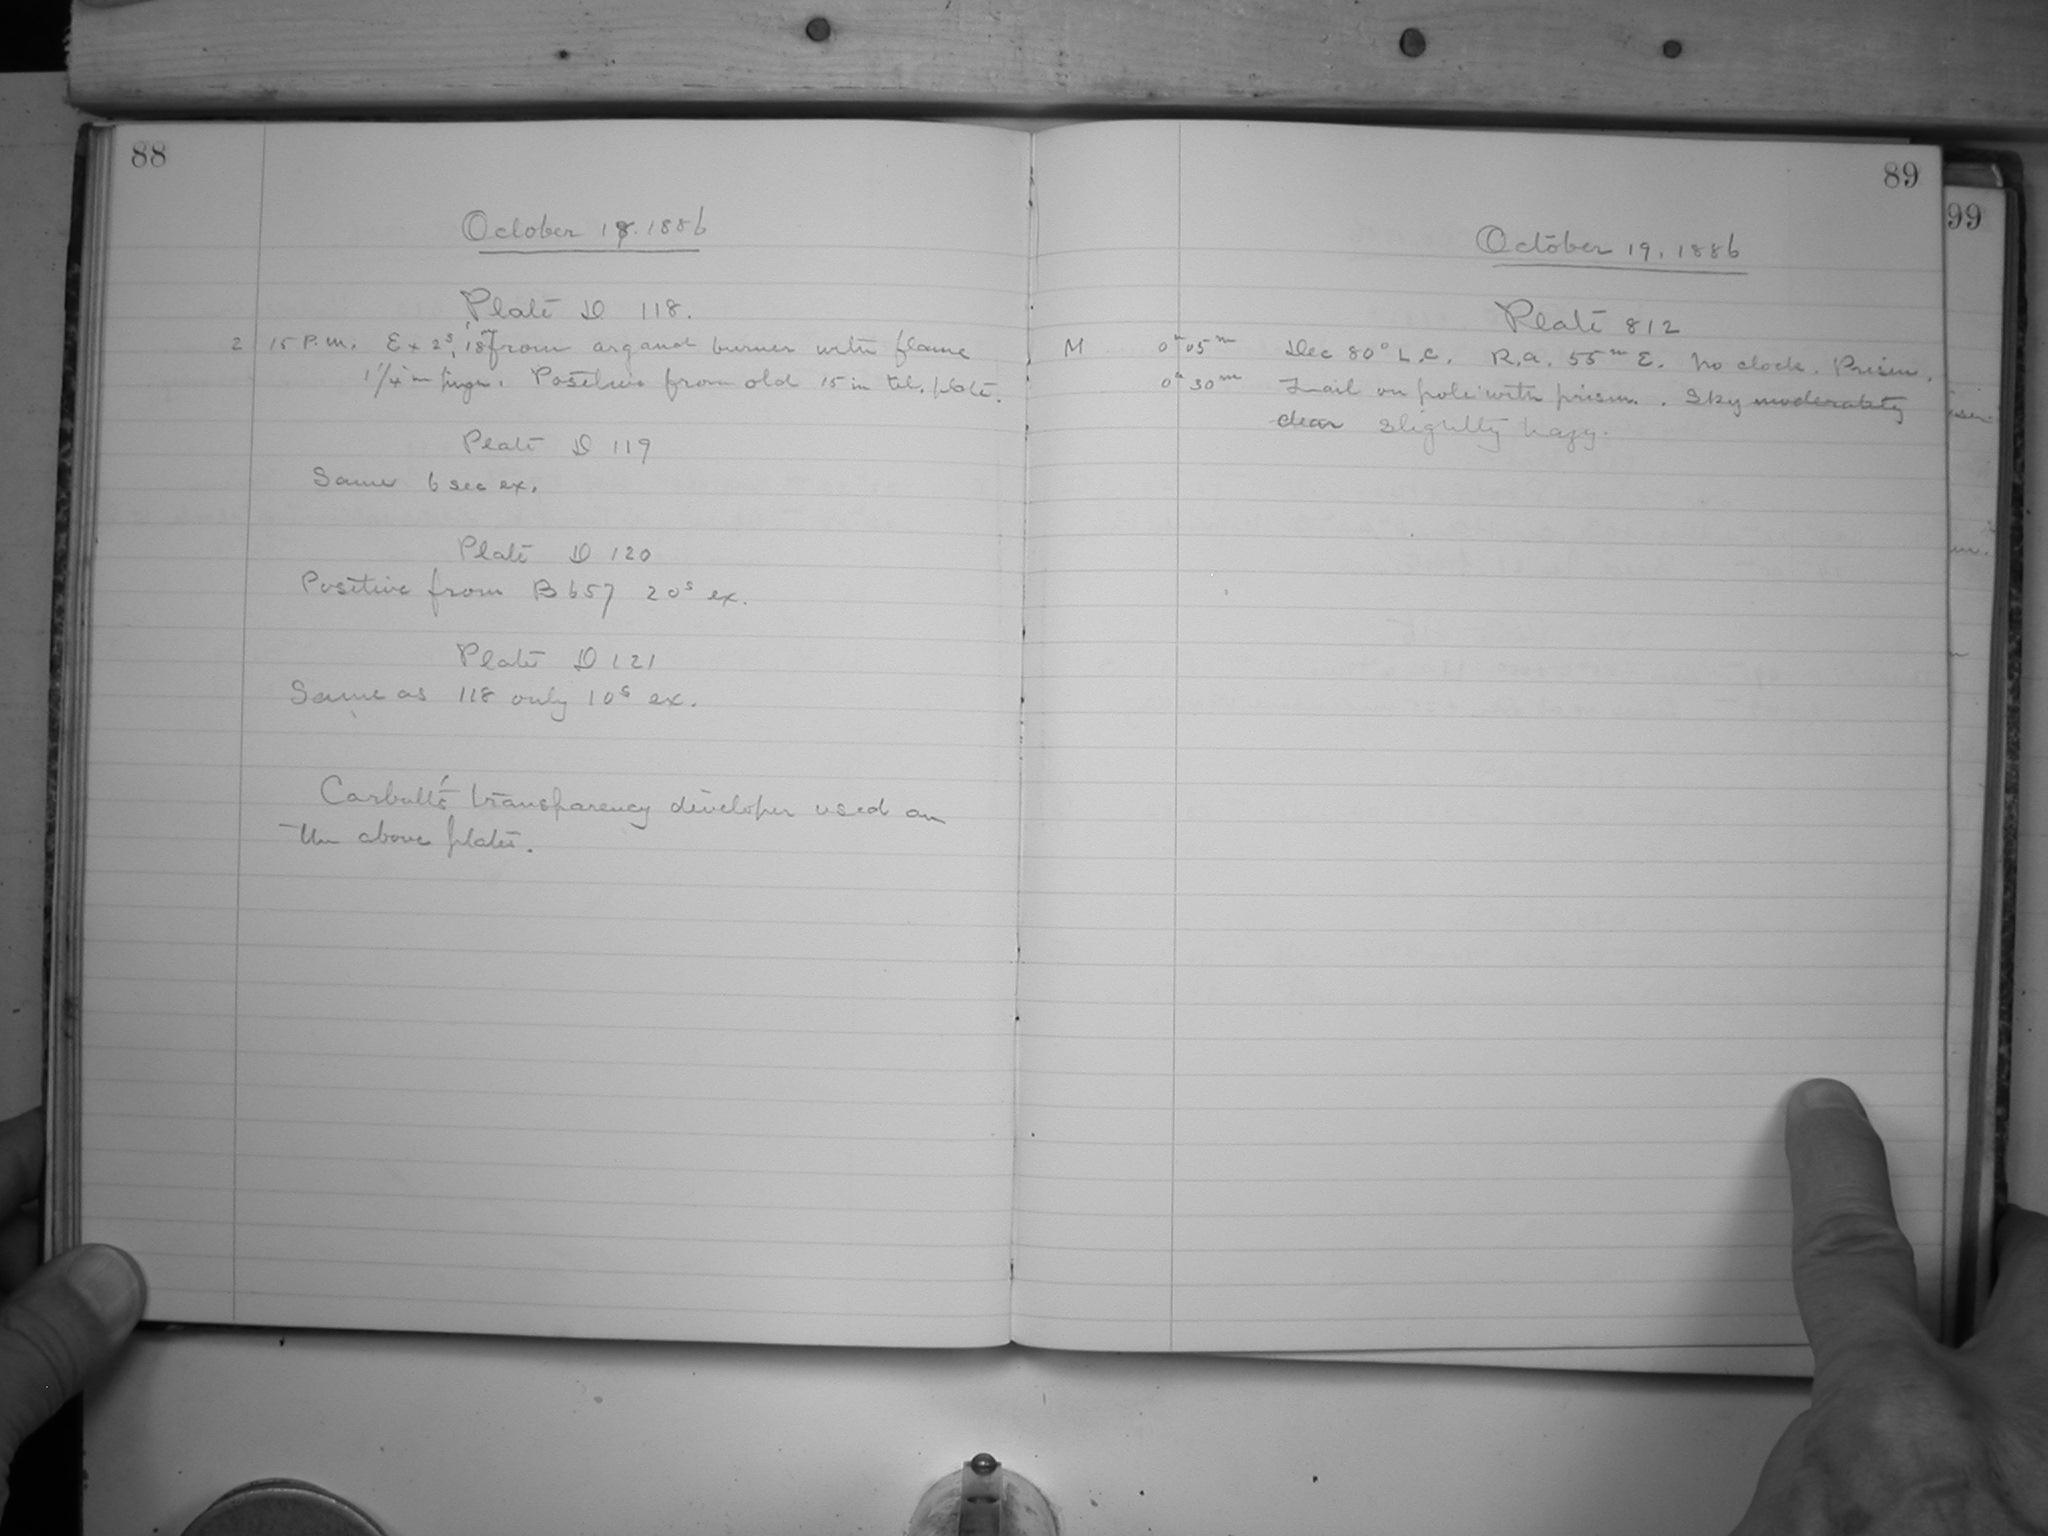 88
October 18. 1886
Plate D 118.
2 15 P.m. Ex 2s, 18in from argand burner with flame
1 1/4 in high. Positive from old 15 in tel. plate.
Plate D 119
Same 6 sec ex.
Plate D 120
Positive from B 657 20s ex.
Plate D 121
Same as 118 only 10s ex.
Carbutt's transparency developer used on
the above plates.
89
October 19, 1886
Plate 812
M 0h 05m Dec 80° L.C. R.a. 55m E. No clock. Prism.
0h 30m Trail on pole with prism. Sky moderately
clear slightly hazy.
99